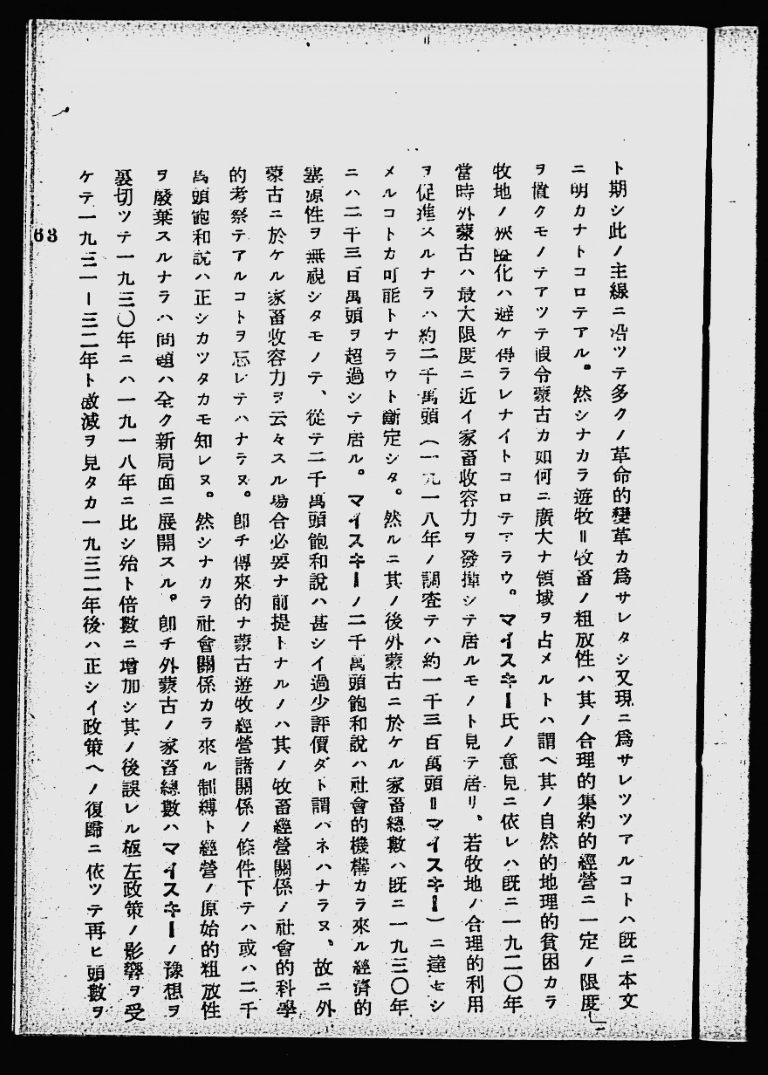 ト期シ此ノ主線ニ沿ツテ多クノ革命的變革カ爲サレタシ又現ニ爲サレツツアルコトハ既ニ本文
ニ明カナトコロテアル。然シナカラ遊牧=牧畜ノ粗放性ハ其ノ合理的集約的經營ニ一定ノ限度
ヲ置クモノテアツテ假令蒙古カ如何ニ廣大ナ領域ヲ占メルトハ謂ヘ其ノ自然的地理的貧困カラ
牧地ノ狹隘化ハ避ケ得ラレナイトコロテアラウ。マイスキー氏ノ意見ニ依レハ既ニ一九二〇年
當時外蒙古ハ最大限度ニ近イ家畜收容力ヲ發揮シテ居ルモノト見テ居リ、若牧地ノ合理的利用
ヲ促進スルナラハ約二千萬頭(一九一八年ノ調査テハ約一千三百萬頭=マイスキー)ニ達セシ
メルコトカ可能トナラウト斷定シタ。然ルニ其ノ後外蒙古ニ於ケル家畜總數ハ既ニ一九三〇年
ニハ二千三百萬頭ヲ超過シテ居ル。マイスキーノ二千萬頭飽和說ハ社會的機構カラ來ル經濟的
塞源性ヲ無視シタモノテ、從テ二千萬頭飽和說ハ甚シイ過少評價ダト謂バネハナラヌ、故ニ外
蒙古ニ於ケル家畜收容力ヲ云々スル場合必要ナ前提トナルノハ其ノ牧畜經營關係ノ社會的科學
的考察テアルコトヲ忘レテハナラヌ。卽チ傳來的ナ蒙古遊牧經營諸關係ノ條件下テハ或ハ二千
萬頭飽和說ハ正シカツタカモ知レヌ。然シナカラ社會關係カラ來ル制縛ト經營ノ原始的粗放性
ヲ廢棄スルナラハ問題ハ全ク新局面ニ展開スル。卽チ外蒙古ノ家畜總數ハマイスキーノ豫想ヲ
裏切ツテ一九三〇年ニハ一九一八年ニ比シ殆ト倍數ニ增加シ其ノ後誤レル極左政策ノ影響ヲ受
ケテ一九三一ー三二年ト激減ヲ見タカ一九三二年後ハ正シイ政策ヘノ復歸ニ依ツテ再ヒ頭數ヲ
63